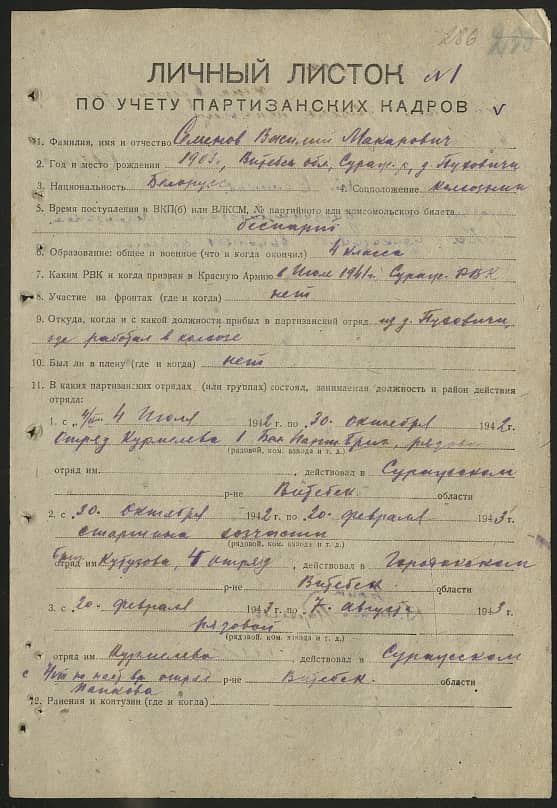 286
ЛИЧНЫЙ ЛИСТОК №1
ПО УЧЕТУ ПАРТИЗАНСКИХ КАДРОВ
1. Фамилия, имя и отчество Семенов Василий Макарович
2. Год и место рождения 1903г., Витебск обл, Сураж. р, д. Пуховичи
3. Национальность Белорусс 4. Соцположение колхозник
5. Время поступления в ВКП(б) или ВЛКСМ, № партийного или комсомольского билета
беспарт
6. Образование: общее и военное (что и когда окончил) 4 класса
7. Каким РВК и когда призван в Красную Армию в Июле 1941г. Сураж. РВК
8. Участие на фронтах (где и когда) нет
9. Откуда, когда и с какой должности прибыл в партизанский отряд из д. Пуховичи,
где работал в колхозе
10. Был ли в плену (где и когда) нет
11. В каких партизанских отрядах (или группах) состоял, занимаемая должность и район действия
отряда:
1. с „ 4 Июля 1942 г. по 30. октября 1942г.
Отряд Курмелева 1 Бел Парт Бриг, рядов
(рядовой, ком. взвода и т. д.)
отряд им. , действовал в Суражском
р-не Витебск области
2. с 30. октября 1942 г. по 20. февраля 1943г.
старшина хозчасти
(рядовой, ком. взвода и т. д.)
Бриг
отряд им Кутузова, 4 отряд , действовал в Городокском
р-не Витебск. области
3. с 20. февраля 1943 г. по 7. августа 1943г.
рядовой
(рядовой, ком. взвода и т. д.)
отряд им Курмелева действовал в Суражском
с р-не Витебск. области
12. Ранения и контузии (где и когда)